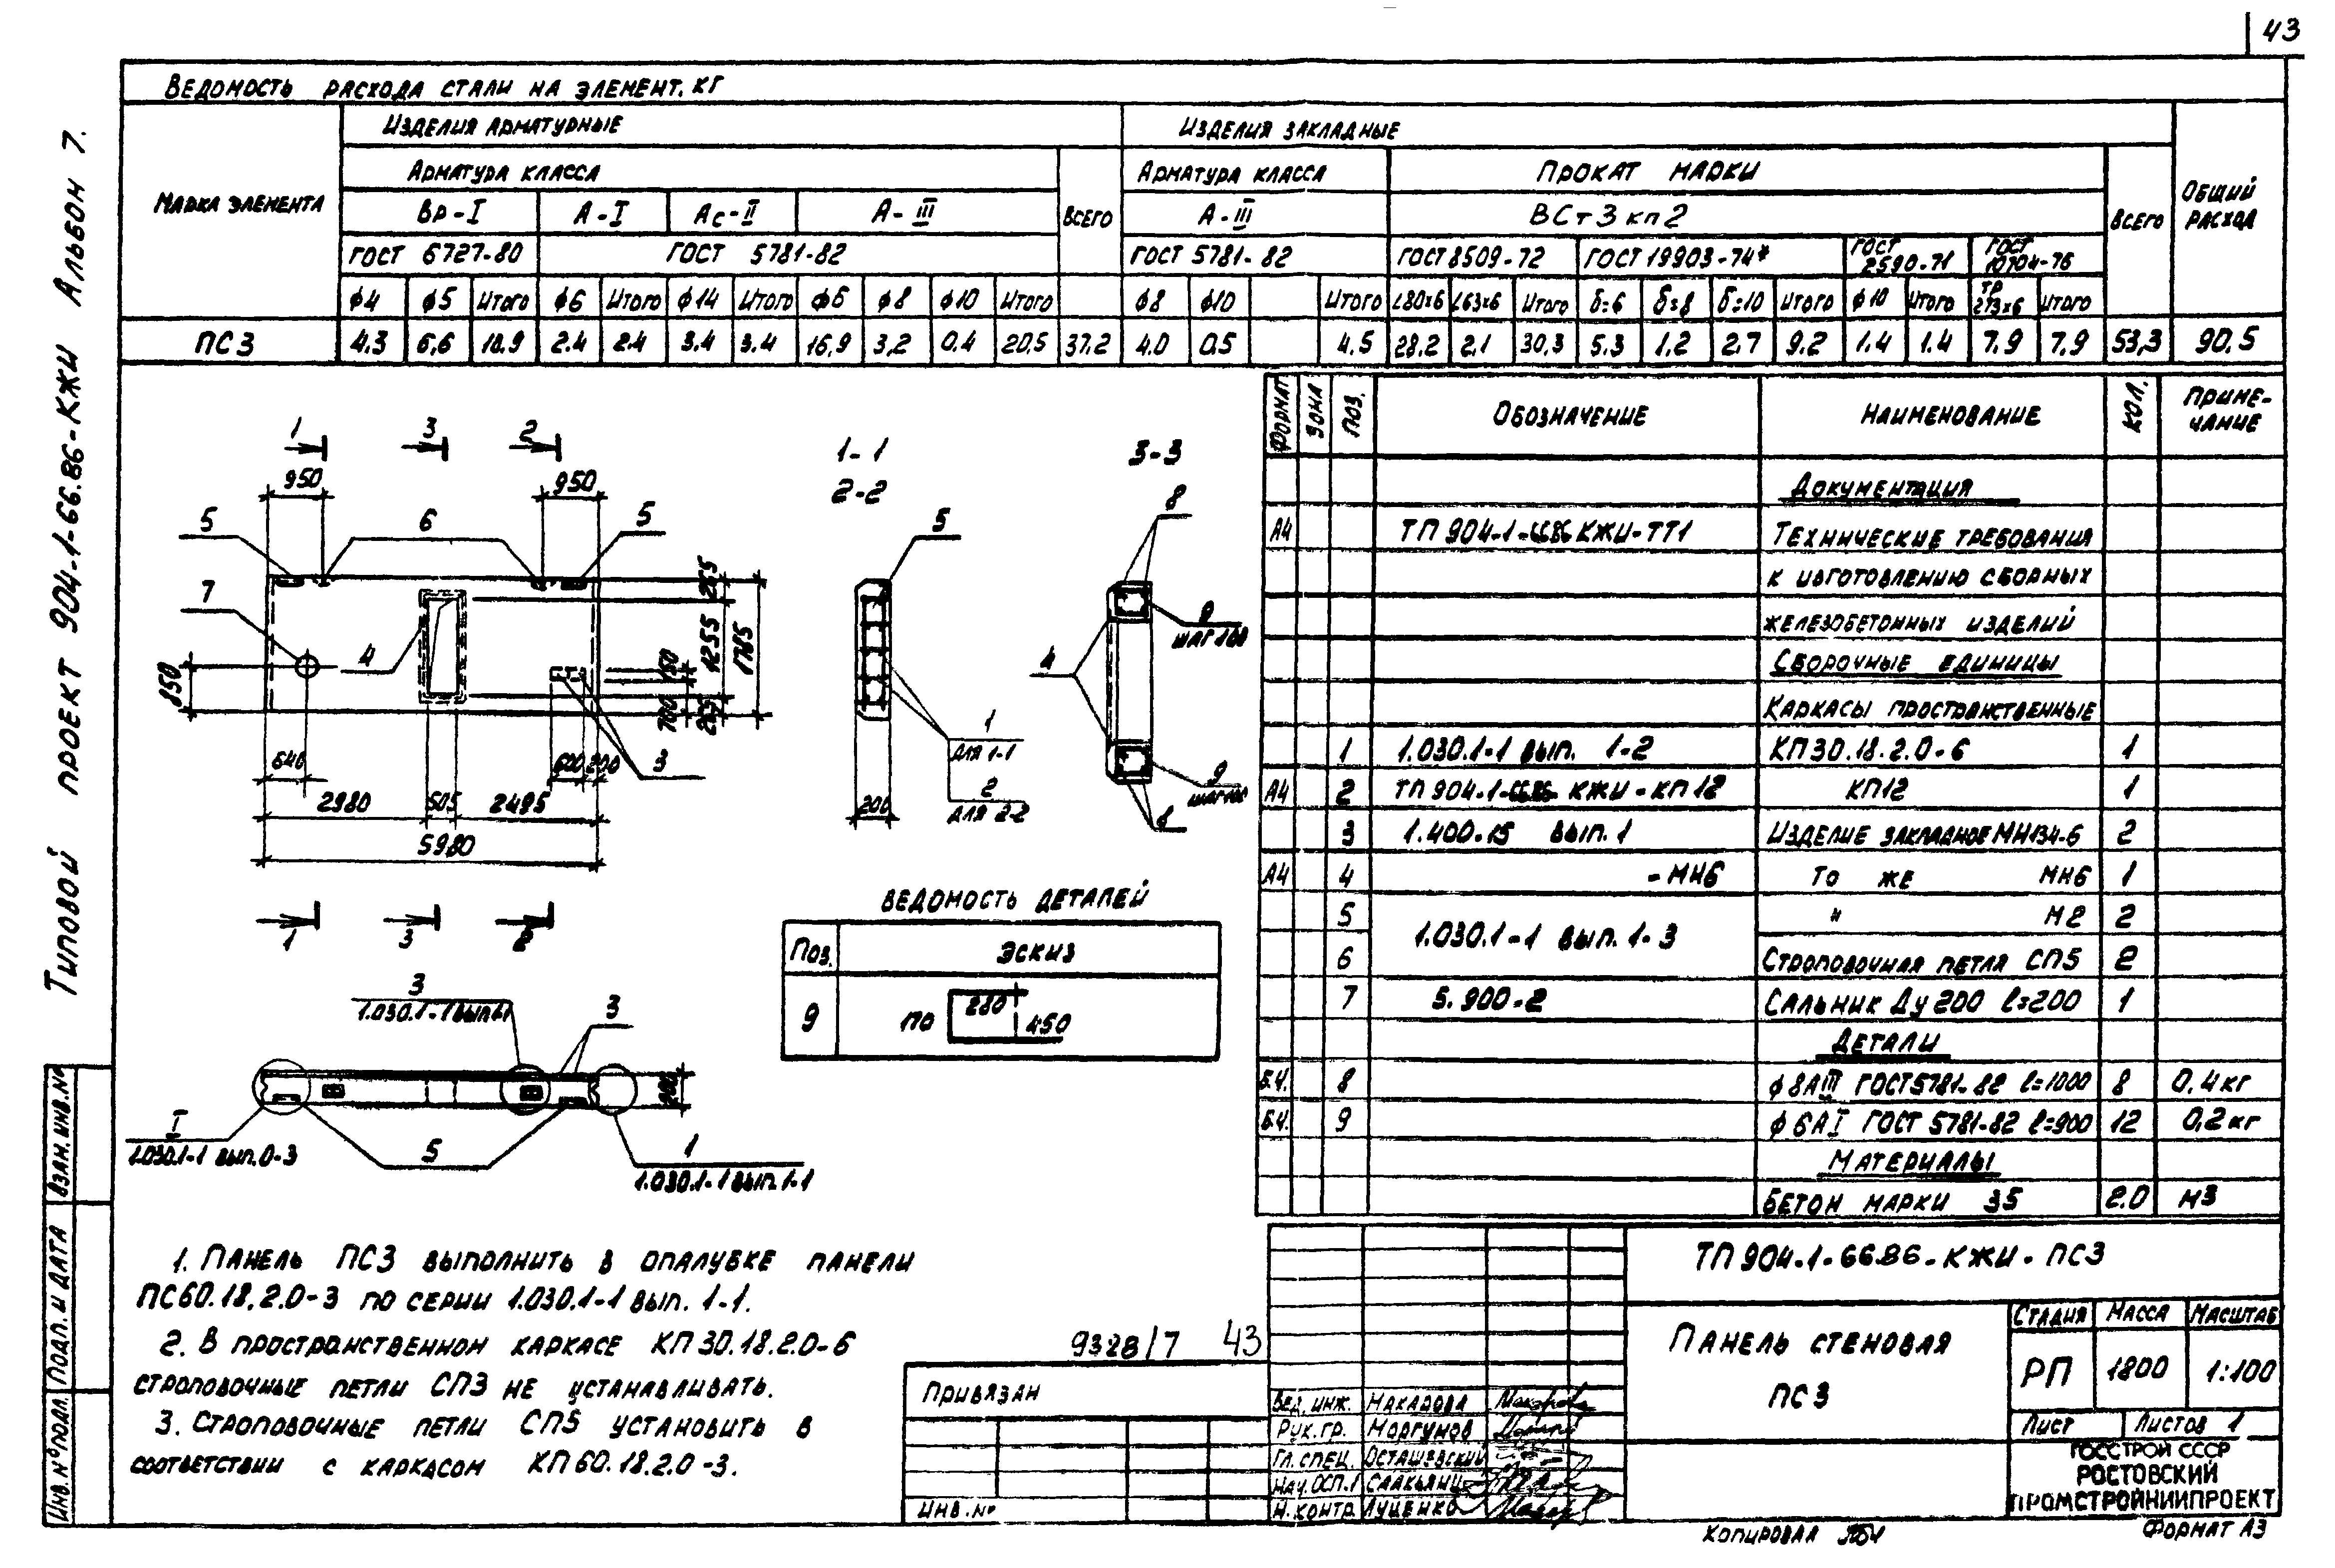 43
Типовой проект 904-1-66.86-КЖИ Альбом 7.
Ведомость расхода стали на элемент, кг
Марка элемента
Изделия арматурные
Изделия закладные
Общий расход
Арматура класса
Всего
Арматура класса
Прокат марки
Всего
Вр-I А-I Ас-II А-III
А-III
ВСт3кп2
ГОСТ 6727-80 ГОСТ 5781-82
ГОСТ 5781-82 ГОСТ 8509-72 ГОСТ 19903-74* ГОСТ 2590-71 ГОСТ 10704-76
ф4 ф5 Итого ф6 Итого ф14 Итого ф6 ф8 ф10 Итого ф8 ф10 Итого L80х6 L63х6 Итого δ=6 δ=8 δ=10 Итого ф10 Итого ТР 273х6 Итого
ПС3 4.3 6,6 10.9 2.4 2.4 3.4 3.4 16,9 3,2 0.4 20,5 37.2 4.0 0.5 4.5 28.2 2.1 30,3 5.3 1.2 2.7 9.2 1.4 1.4 7.9 7.9 53,3 90.5
1 3 2
950 950
5 6 5
7
4
850
265
1255
1765
150
700
265
640
600 200 3
2980 505 2495
5980
1 3 2
1-1
2-2
5
1
для 1-1
2
для 2-2
200
3-3
8
9
шаг 100
4
9
3
3
1
5
I
1.030.1-1 вып. 0-3
1.030.1-1 вып. 1-1
Ведомость деталей
Поз. Эскиз
9 по 280 450
Формат Зона Поз. Обозначение Наименование Кол. Примечание
Документация
А4 ТП 904-1-66.86 КЖИ-ТТ1 Технические требования
к изготовлению сборных
железобетонных изделий
Сборочные единицы
Каркасы пространственные
1 1.030.1-1 вып. 1-2 КП30.18.2.0-6 1
А4 2 ТП 904-1-66.86-КЖИ-КП12 КП12 1
3 1.400-15 вып. 1 Изделие закладное МН134-6 2
А4 4 -МН6 То же МН6 1
5 1.030.1-1 вып. 1-3 " М2 2
6 Строповочная петля СП5 2
7 5.900-2 Сальник Ду 200 l=200 1
Детали
Б.Ч. 8 ф8АIII ГОСТ 5781-82 l=1000 8 0,4 кг
Б.Ч. 9 ф6АI ГОСТ 5781-82 l=900 12 0,2 кг
Материалы
Бетон марки 35 2.0 м3
1. Панель ПС3 выполнить в опалубке панели
ПС60.18.2.0-3 по серии 1.030.1-1 вып. 1-1.
2. В пространственном каркасе КП30.18.2.0-6
строповочные петли СП3 не устанавливать.
3. Строповочные петли СП5 установить в
соответствии с каркасом КП60.18.2.0-3.
9328/7 43
Привязан
Инв. №
ТП 904-1-66.86-КЖИ-ПС3
Панель стеновая
ПС3
Стадия Масса Масштаб
РП 1800 1:100
Лист Листов 1
Госстрой СССР
Ростовский
Промстройниипроект
Вед. инж. Макарова
Рук. гр. Моргунов
Гл. спец. Осташевский
Нач. ОСП.1 Саакьянц
Н. контр. Луценко
Инв. № подл. Подп. и дата Взам. инв. №
Копировал
Формат А3